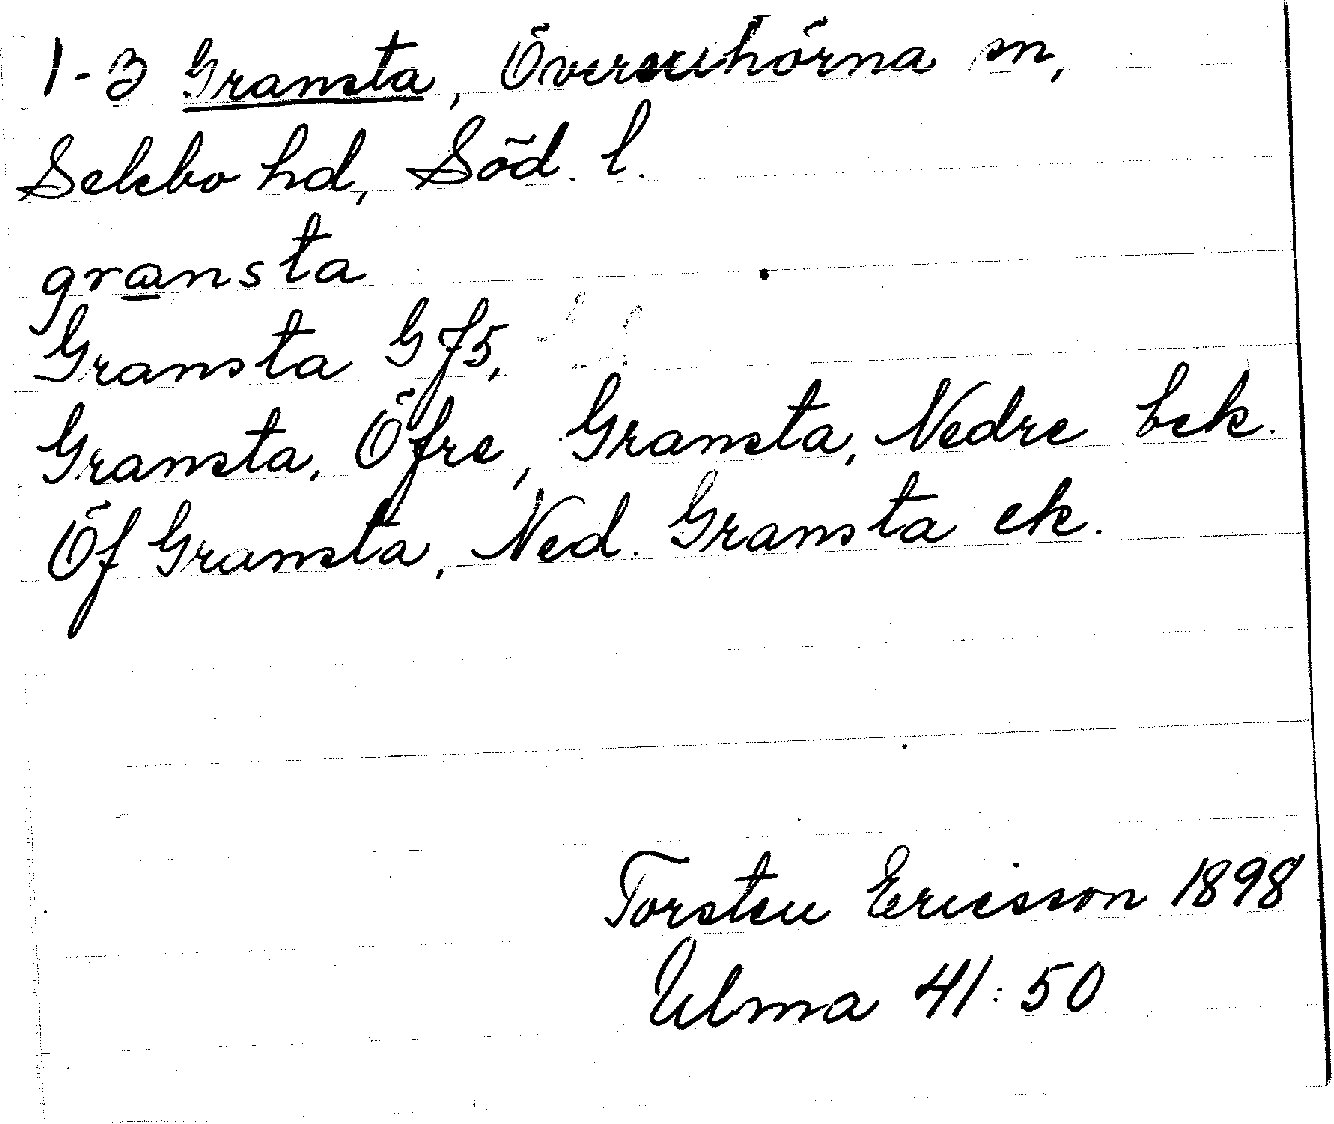 1-3 Gransta, Överenhörna sn,
Selebo hd, Söd. l.
gransta
Gransta G f5,
Gransta, Öfre, Gransta, Nedre bek.
Öf Gransta, Ned. Gransta ek.
Torsten Ericsson 1898
Ulma 41:50